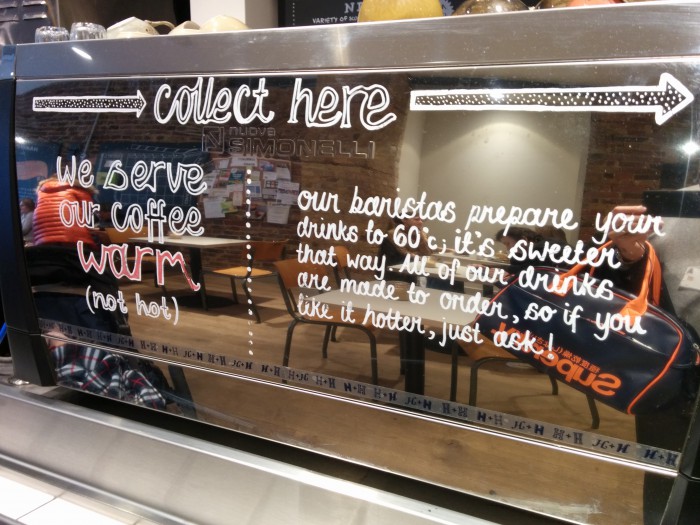 collect here
nuova
SIMONELLI
We serve
our coffee
warm
(not hot)
our baristas prepare your
drinks to 60°c; it's sweeter
that way. All of our drinks
are made to order, so if you
like it hotter, just ask!
Superdry
H+H H+H H+H H+H H+H H+H H+H